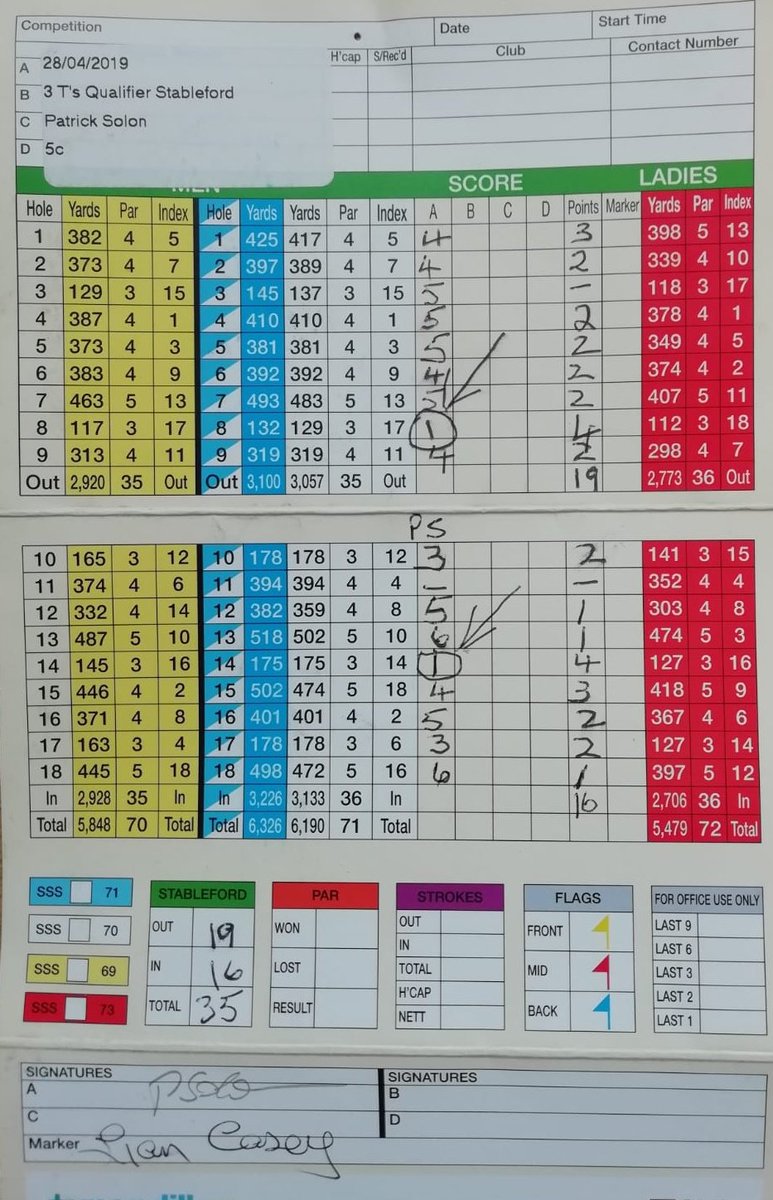 Competition Date Start Time
H'cap S/Rec'd Club Contact Number
A 28/04/2019
B 3 T's Qualifier Stableford
C Patrick Solon
D 5c
MEN SCORE LADIES
Hole Yards Par Index Hole Yards Yards Par Index A B C D Points Marker Yards Par Index
1 382 4 5 1 425 417 4 5 4 3 398 5 13
2 373 4 7 2 397 389 4 7 4 2 339 4 10
3 129 3 15 3 145 137 3 15 5 – 118 3 17
4 387 4 1 4 410 410 4 1 5 2 378 4 1
5 373 4 3 5 381 381 4 3 5 2 349 4 5
6 383 4 9 6 392 392 4 9 4 2 374 4 2
7 463 5 13 7 493 483 5 13 5 2 407 5 11
8 117 3 17 8 132 129 3 17 1 4 112 3 18
9 313 4 11 9 319 319 4 11 4 2 298 4 7
Out 2,920 35 Out Out 3,100 3,057 35 Out 19 2,773 36 Out
PS
10 165 3 12 10 178 178 3 12 3 2 141 3 15
11 374 4 6 11 394 394 4 4 – – 352 4 4
12 332 4 14 12 382 359 4 8 5 1 303 4 8
13 487 5 10 13 518 502 5 10 6 1 474 5 3
14 145 3 16 14 175 175 3 14 1 4 127 3 16
15 446 4 2 15 502 474 5 18 4 3 418 5 9
16 371 4 8 16 401 401 4 2 5 2 367 4 6
17 163 3 4 17 178 178 3 6 3 2 127 3 14
18 445 5 18 18 498 472 5 16 6 1 397 5 12
In 2,928 35 In In 3,226 3,133 36 In 16 2,706 36 In
Total 5,848 70 Total Total 6,326 6,190 71 Total 5,479 72 Total
SSS 71 STABLEFORD PAR STROKES FLAGS FOR OFFICE USE ONLY
SSS 70 OUT 19 WON OUT FRONT LAST 9
SSS 69 IN 16 LOST IN MID LAST 6
SSS 73 TOTAL 35 RESULT TOTAL BACK LAST 3
H'CAP LAST 2
NETT LAST 1
SIGNATURES SIGNATURES
A PSolo B
C D
Marker Casey